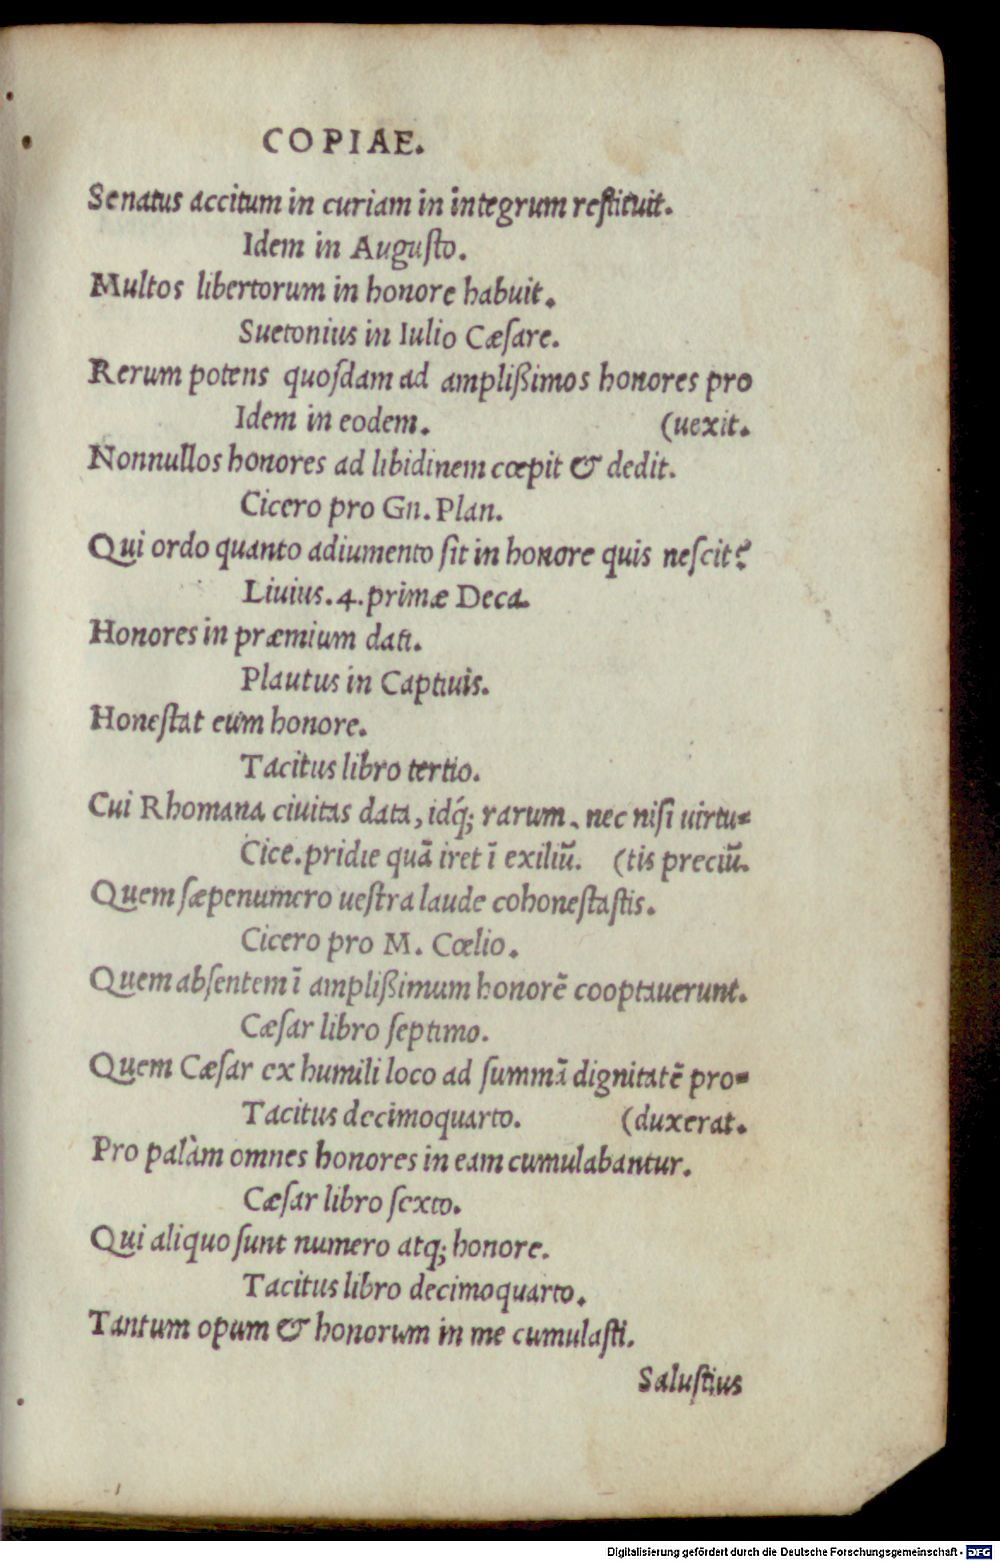 COPIAE.
Senatus accitum in curiam in integrum reſtituit.
Idem in Auguſto.
Multos libertorum in honore habuit.
Suetonius in Iulio Cæſare.
Rerum potens quoſdam ad ampliſſimos honores pro
Idem in eodem. (uexit.
Nonnullos honores ad libidinem cœpit & dedit.
Cicero pro Gn. Plan.
Qui ordo quanto adiumento ſit in honore quis neſcit?
Liuius. 4. primæ Deca.
Honores in præmium dati.
Plautus in Captiuis.
Honeſtat eum honore.
Tacitus libro tertio.
Cui Rhomana ciuitas data, idq́; rarum, nec niſi uirtu=
Cice. pridie quā iret ī exiliū. (tis preciū.
Quem ſæpenumero ueſtra laude cohoneſtaſtis.
Cicero pro M. Cœlio.
Quem abſentem ī ampliſſimum honorē cooptauerunt.
Cæſar libro ſeptimo.
Quem Cæſar ex humili loco ad ſummā dignitatē pro=
Tacitus decimoquarto. (duxerat.
Pro palàm omnes honores in eam cumulabantur.
Cæſar libro ſexto.
Qui aliquo ſunt numero atq; honore.
Tacitus libro decimoquarto.
Tantum opum & honorum in me cumulaſti.
Saluſtius
Digitalisierung gefördert durch die Deutsche Forschungsgemeinschaft - DFG